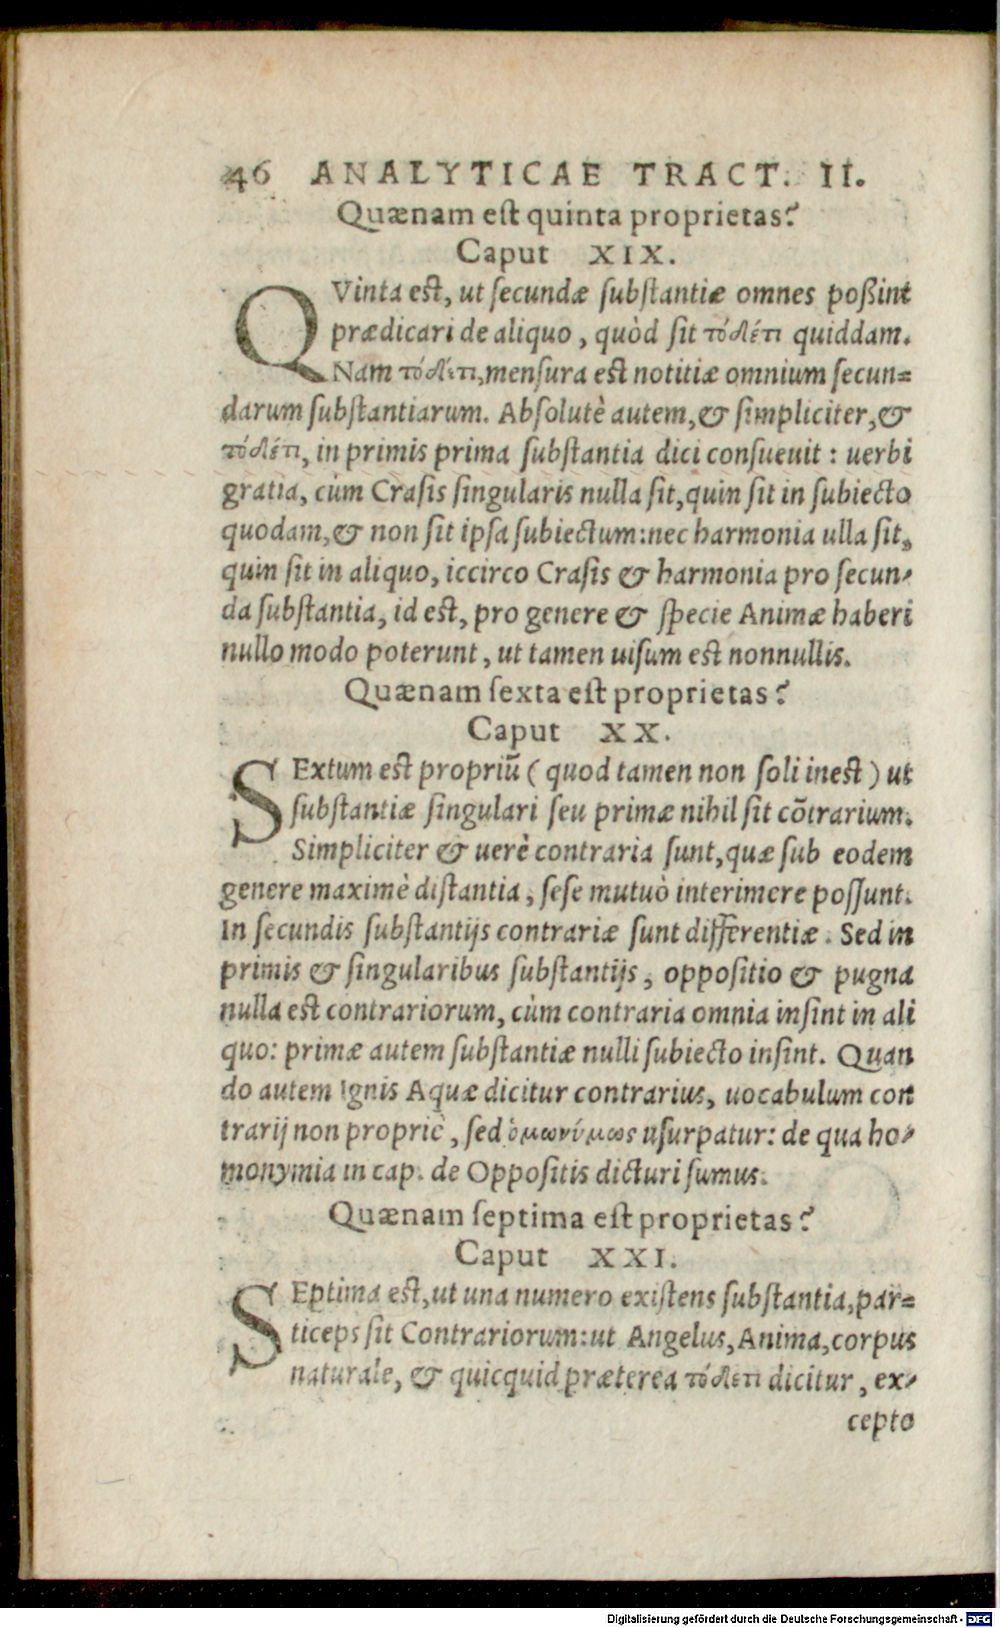 46 ANALYTICAE TRACT. II.
Quænam est quinta proprietas?
Caput XIX.
QVinta est, ut secundæ substantiæ omnes poßint
prædicari de aliquo, quòd sit τόδέτι quiddam.
Nam τόδέτι, mensura est notitiæ omnium secun=
darum substantiarum. Absolutè autem, & simpliciter, &
τόδέτι, in primis prima substantia dici consueuit: uerbi
gratia, cùm Crasis singularis nulla sit, quin sit in subiecto
quodam, & non sit ipsa subiectum: nec harmonia ulla sit,
quin sit in aliquo, iccirco Crasis & harmonia pro secun-
da substantia, id est, pro genere & specie Animæ haberi
nullo modo poterunt, ut tamen uisum est nonnullis.
Quænam sexta est proprietas?
Caput XX.
SExtum est propriũ (quod tamen non soli inest) ut
substantiæ singulari seu primæ nihil sit cõtrarium.
Simpliciter & uerè contraria sunt, quæ sub eodem
genere maximè distantia, sese mutuò interimere possunt.
In secundis substantijs contrariæ sunt differentiæ. Sed in
primis & singularibus substantijs, oppositio & pugna
nulla est contrariorum, cùm contraria omnia insint in ali
quo: primæ autem substantiæ nulli subiecto insint. Quan
do autem Ignis Aquæ dicitur contrarius, uocabulum con
trarij non propriè, sed ὁμωνύμως usurpatur: de qua ho-
monymia in cap. de Oppositis dicturi sumus.
Quænam septima est proprietas?
Caput XXI.
SEptima est, ut una numero existens substantia, par=
ticeps sit Contrariorum: ut Angelus, Anima, corpus
naturale, & quicquid præterea τόδετι dicitur, ex-
cepto
Digitalisierung gefördert durch die Deutsche Forschungsgemeinschaft - DFG